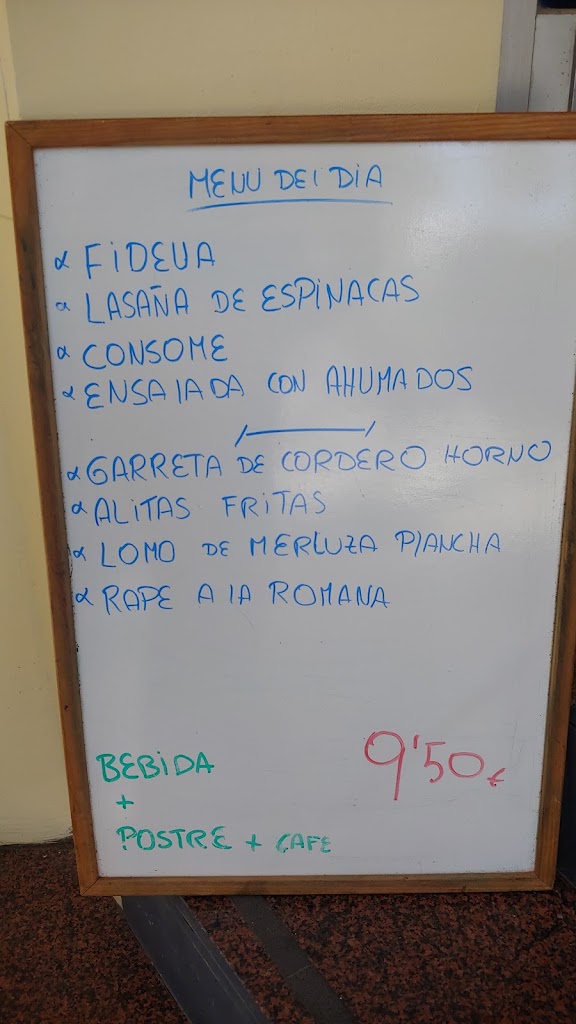 MENU DEl DiA
FiDEUA
LASAÑA DE ESPiNACAS
CONSOME
ENSAlADA CON AHUMADOS
GARRETA DE CORDERO HORNO
ALiTAS FRiTAS
LOMO DE MERLUZA PlANCHA
RAPE A lA ROMANA
BEBiDA
+
POSTRE + CAFE
9'50€